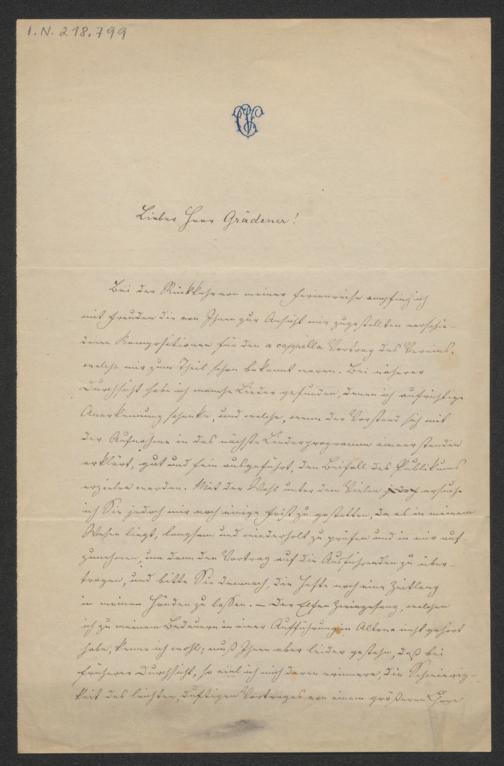 I.N. 218.799
Lieber Herr Grädener!
Bei der Rückkehr von meiner Ferienreise empfing ich
mit Freuden die von Ihnen zur Ansicht mir zugestellten verschie-
denen Kompositionen für den a cappella Vortrag des Vereins,
welche mir zum Theil schon bekannt waren. Bei näherer
Durchsicht habe ich manche Lieder gefunden, denen ich aufrichtige
Anerkennung schenke, und welche, wenn der Vorstand sich mit
der Aufnahme in das nächste Liederprogramm einverstanden
erklärt, gut und fein ausgeführt, den Beifall des Publikums
erzielen werden. Mit der Wahl unter den Vielen ersuche
ich Sie jedoch mir noch einige Frist zu gestatten, da es in meinem
Wesen liegt, langsam und wiederholt zu prüfen und in mir auf-
zunehmen, um dann den Vortrag auf die Ausführenden zu über-
tragen, und bitte Sie demnach, die Hefte noch eine Zeitlang
in meinen Händen zu lassen. – Der Elfen Zwiegesang, welchen
ich zu meinem Bedauern in einer Aufführung in Altona nicht gehört
habe, kenne ich wohl; muß Ihnen aber leider gestehn, daß bei
früherer Durchsicht, so viel ich mich deren erinnere, die Schwierig-
keit des leichten, duftigen Vortrages von einem größeren Chore